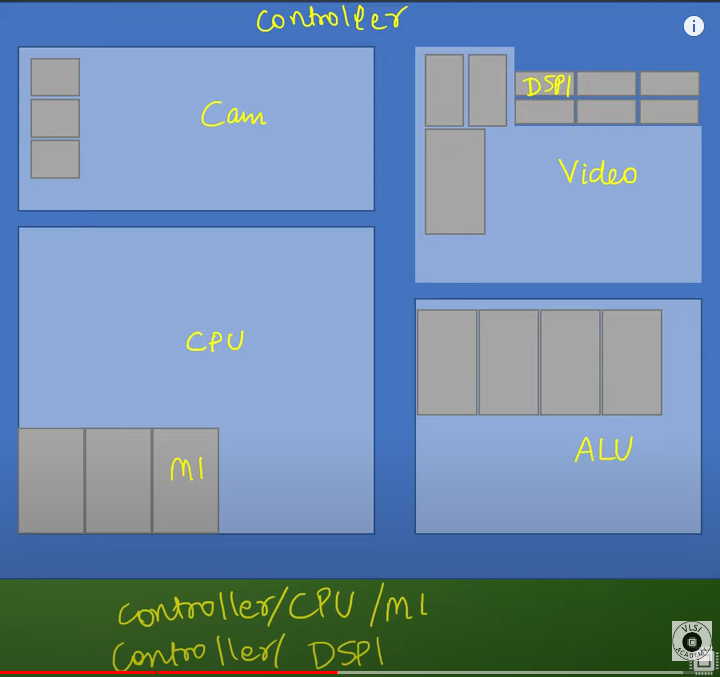 controller
Cam
DSP1
Video
CPU
M1
ALU
controller/CPU/M1
controller/ DSP1
VLSI
ACADEMY